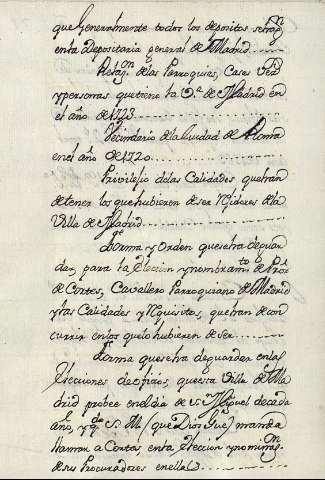 que Generalmente todos los depositos se hagn
en la Depositaria general de Madrid
Relazon de las Parroquias, Casas
y personas que tiene la Va. de Madrid en
el año de 1723
Vecindario de la Ciudad de Roma
en el año de 1720
Privilexio de las Calidades que han
de tener los que hubieren de ser Rejidores de la
Villa de Madrid
Forma y Orden que se ha de guar
dar, para la Eleccion y nombramto. de Pror.
de Cortes, Cavallero Parroquiano de Madrid
y las Calidades y Requisitos, que han de con
currir en los que lo hubieren de ser
Forma que se ha de guardar en las
Elecciones de oficios, que esta Villa de Ma
drid probee en el dia de Sn. Miguel de cada
año, y qdo. S. M. (que Dios Gue.) manda
llamar a Cortes en la Eleccion y nominazon.
de sus Procuradores en ellas